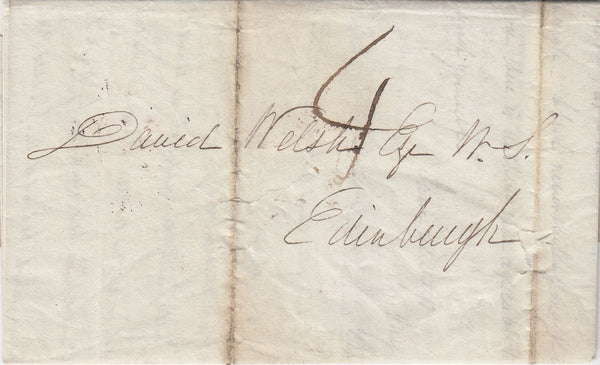 4
David Welsh Esqr W.S.
Edinburgh